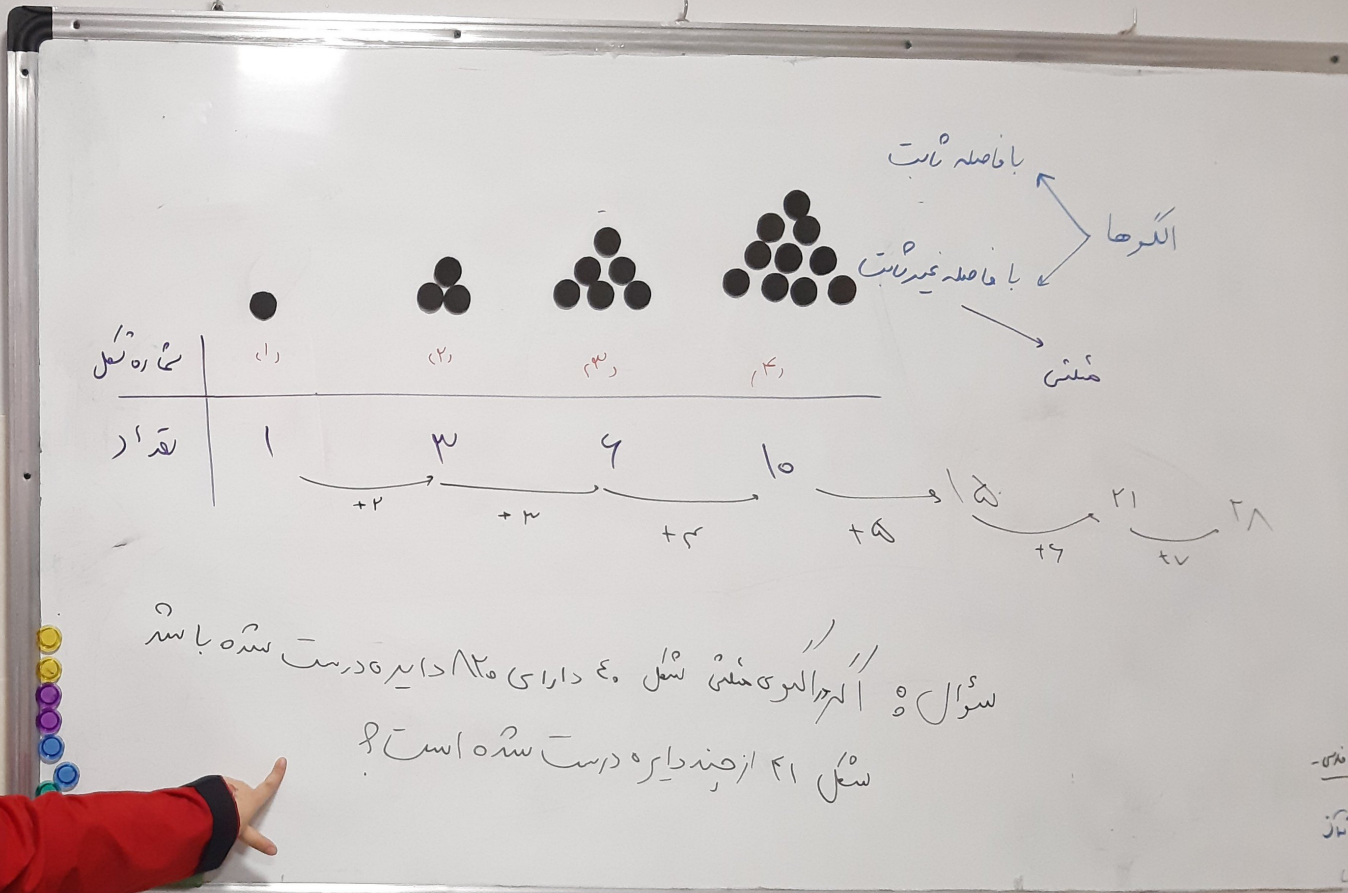 با فاصله ثابت
الگوها
با فاصله غیر ثابت
مثلثی
شماره شکل (۱) (۲) (۳) (۴)
تعداد ۱ ۳ ۶ ۱۰ ۱۵ ۲۱ ۲۸
+۲ +۳ +۴ +۵ +۶ +۷
سؤال : اگر در الگوی مثلثی شکل ۴۰ دارای ۸۲۰ دایره درست شده باشد
شکل ۴۱ از چند دایره درست شده است؟